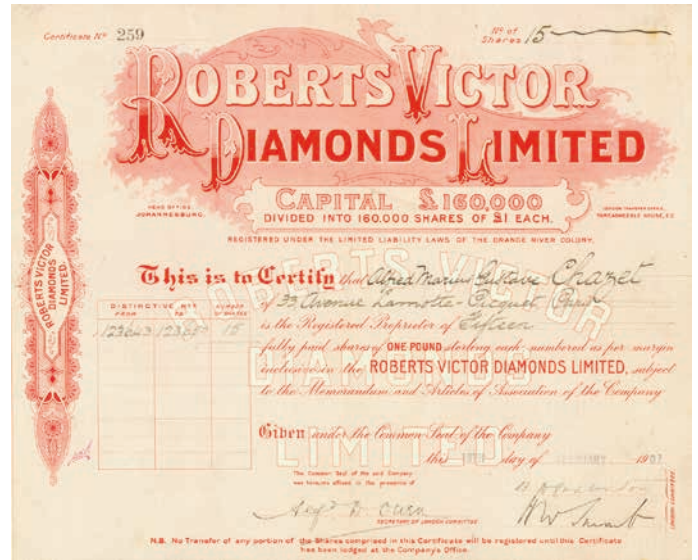 Certificate No 259
No of Shares 15
ROBERTS VICTOR
DIAMONDS LIMITED
CAPITAL £160,000
DIVIDED INTO 160.000 SHARES OF £1 EACH.
HEAD OFFICE
JOHANNESBURG.
LONDON TRANSFER OFFICE,
REGISTERED UNDER THE LIMITED LIABILITY LAWS OF THE ORANGE RIVER COLONY.
This is to Certify that Alfred Marius Gustave Chazet
of 33 Avenue Lamotte-Picquet, Paris
is the Registered Proprietor of Fifteen
fully paid shares of ONE POUND sterling each, numbered as per margin
inclusive in the ROBERTS VICTOR DIAMONDS LIMITED, subject
to the Memorandum and Articles of Association of the Company
DISTINCTIVE Nos
FROM TO
NUMBER OF SHARES
15
ROBERTS VICTOR
DIAMONDS
LIMITED.
ROBERTS VICTOR
DIAMONDS
LIMITED
Given under the Common Seal of the Company
this day of 1907
The Common Seal of the said Company
was hereunto affixed in the presence of
SECRETARY OF LONDON COMMITTEE
LONDON COMMITTEE
N.B. No Transfer of any portion of the Shares comprised in this Certificate will be registered until this Certificate
has been lodged at the Company's Office.